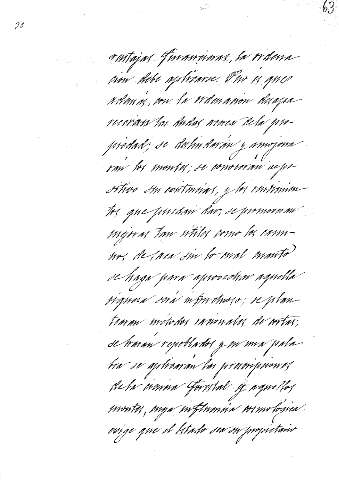 63
ventajas financieras, la ordena
cion debe aplicarse. Por es que
además, con la ordenación desapa
recerian las dudas acerca de la pro
piedad; se deslindarán y amojona
rán los montes; se conocerán
sus existencias, y los rendimien
tos que puedan dar; se promoverán
mejoras tan utiles como los cami
nos de saca sin lo cual cuanto
se haga para aprovechar aquella
riqueza será infructuoso; se plan
tearán métodos racionales de cortas;
se harán repoblados y en una pala
bra se aplicarán las prescripciones
de la ciencia forestal á aquellos
montes, cuya influencia cosmológica
exige que el Estado sea su propietario